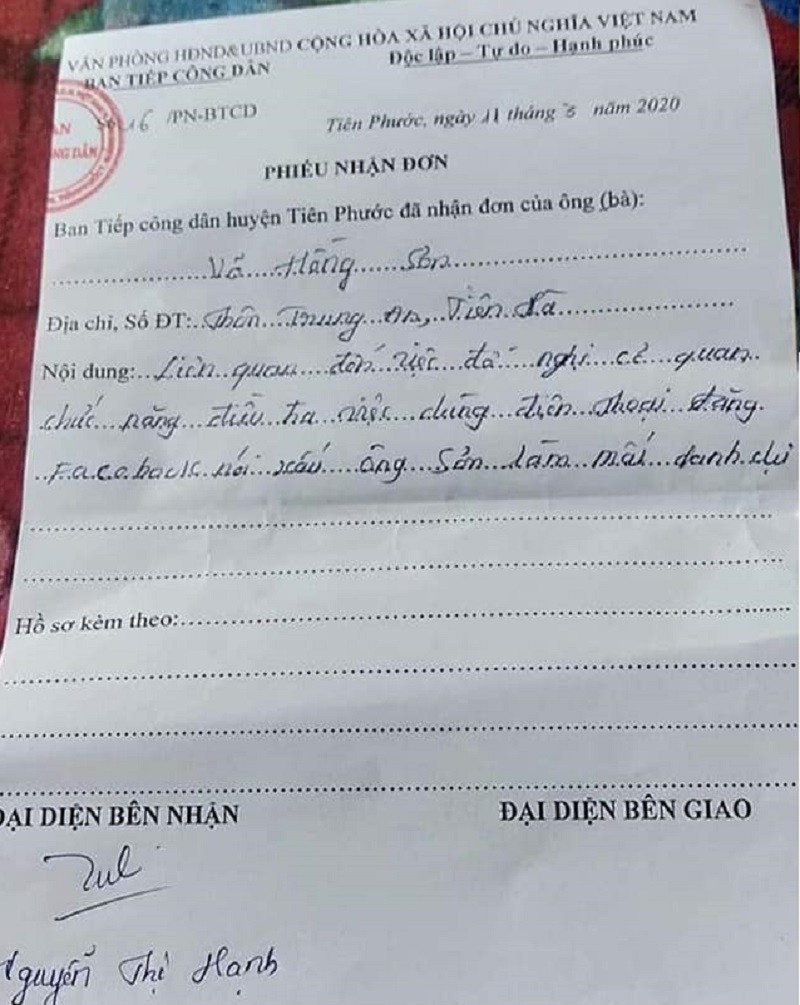 VĂN PHÒNG HĐND&UBND CỘNG HÒA XÃ HỘI CHỦ NGHĨA VIỆT NAM
BAN TIẾP CÔNG DÂN Độc lập – Tự do – Hạnh phúc
/PN-BTCD Tiên Phước, ngày 11 tháng 3 năm 2020
PHIẾU NHẬN ĐƠN
Ban Tiếp công dân huyện Tiên Phước đã nhận đơn của ông (bà):
Võ Hồng Sơn
Địa chỉ, Số ĐT: Thôn Trung An, Tiên Hà
Nội dung: Liên quan đến việc đề nghị cơ quan
chức năng điều tra việc dùng điện thoại đăng
Facebook nói xấu ông Sơn làm mất danh dự
Hồ sơ kèm theo:
ĐẠI DIỆN BÊN NHẬN ĐẠI DIỆN BÊN GIAO
Nguyễn Thị Hạnh